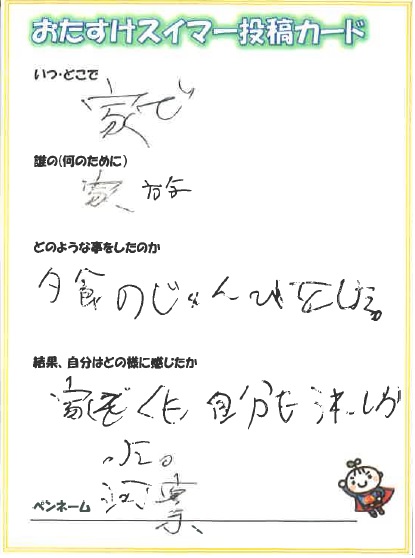 おたすけスイマー投稿カード
いつ・どこで
家で
誰の(何のために)
家
どのような事をしたのか
夕食のじゅんびをした。
結果、自分はどの様に感じたか
家ぞくも自分も
ペンネーム